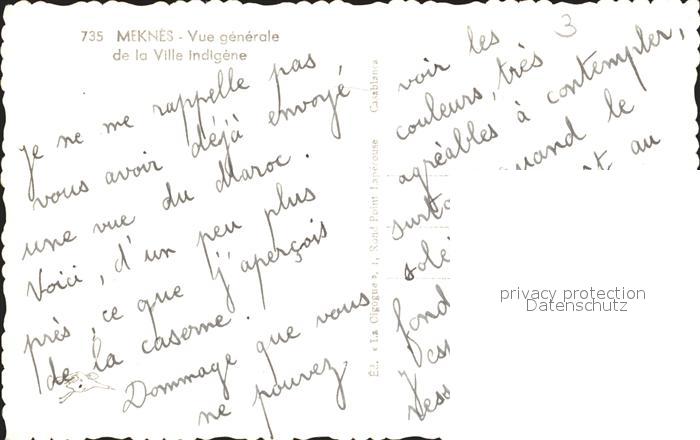 735 MEKNÈS - Vue générale
de la Ville indigène
je ne me rappelle pas
vous avoir déjà envoyé
une vue du Maroc.
Voici, d'un peu plus
près, ce que j'aperçois
de la caserne.
Dommage que vous
ne pouvez
Éd. « La Cigogne », 1, Rond Point Lapérouse Casablanca
3
voir les
couleurs, très
agréables à contempler,
quand le
au
solei
fond
privacy protection
Datenschutz